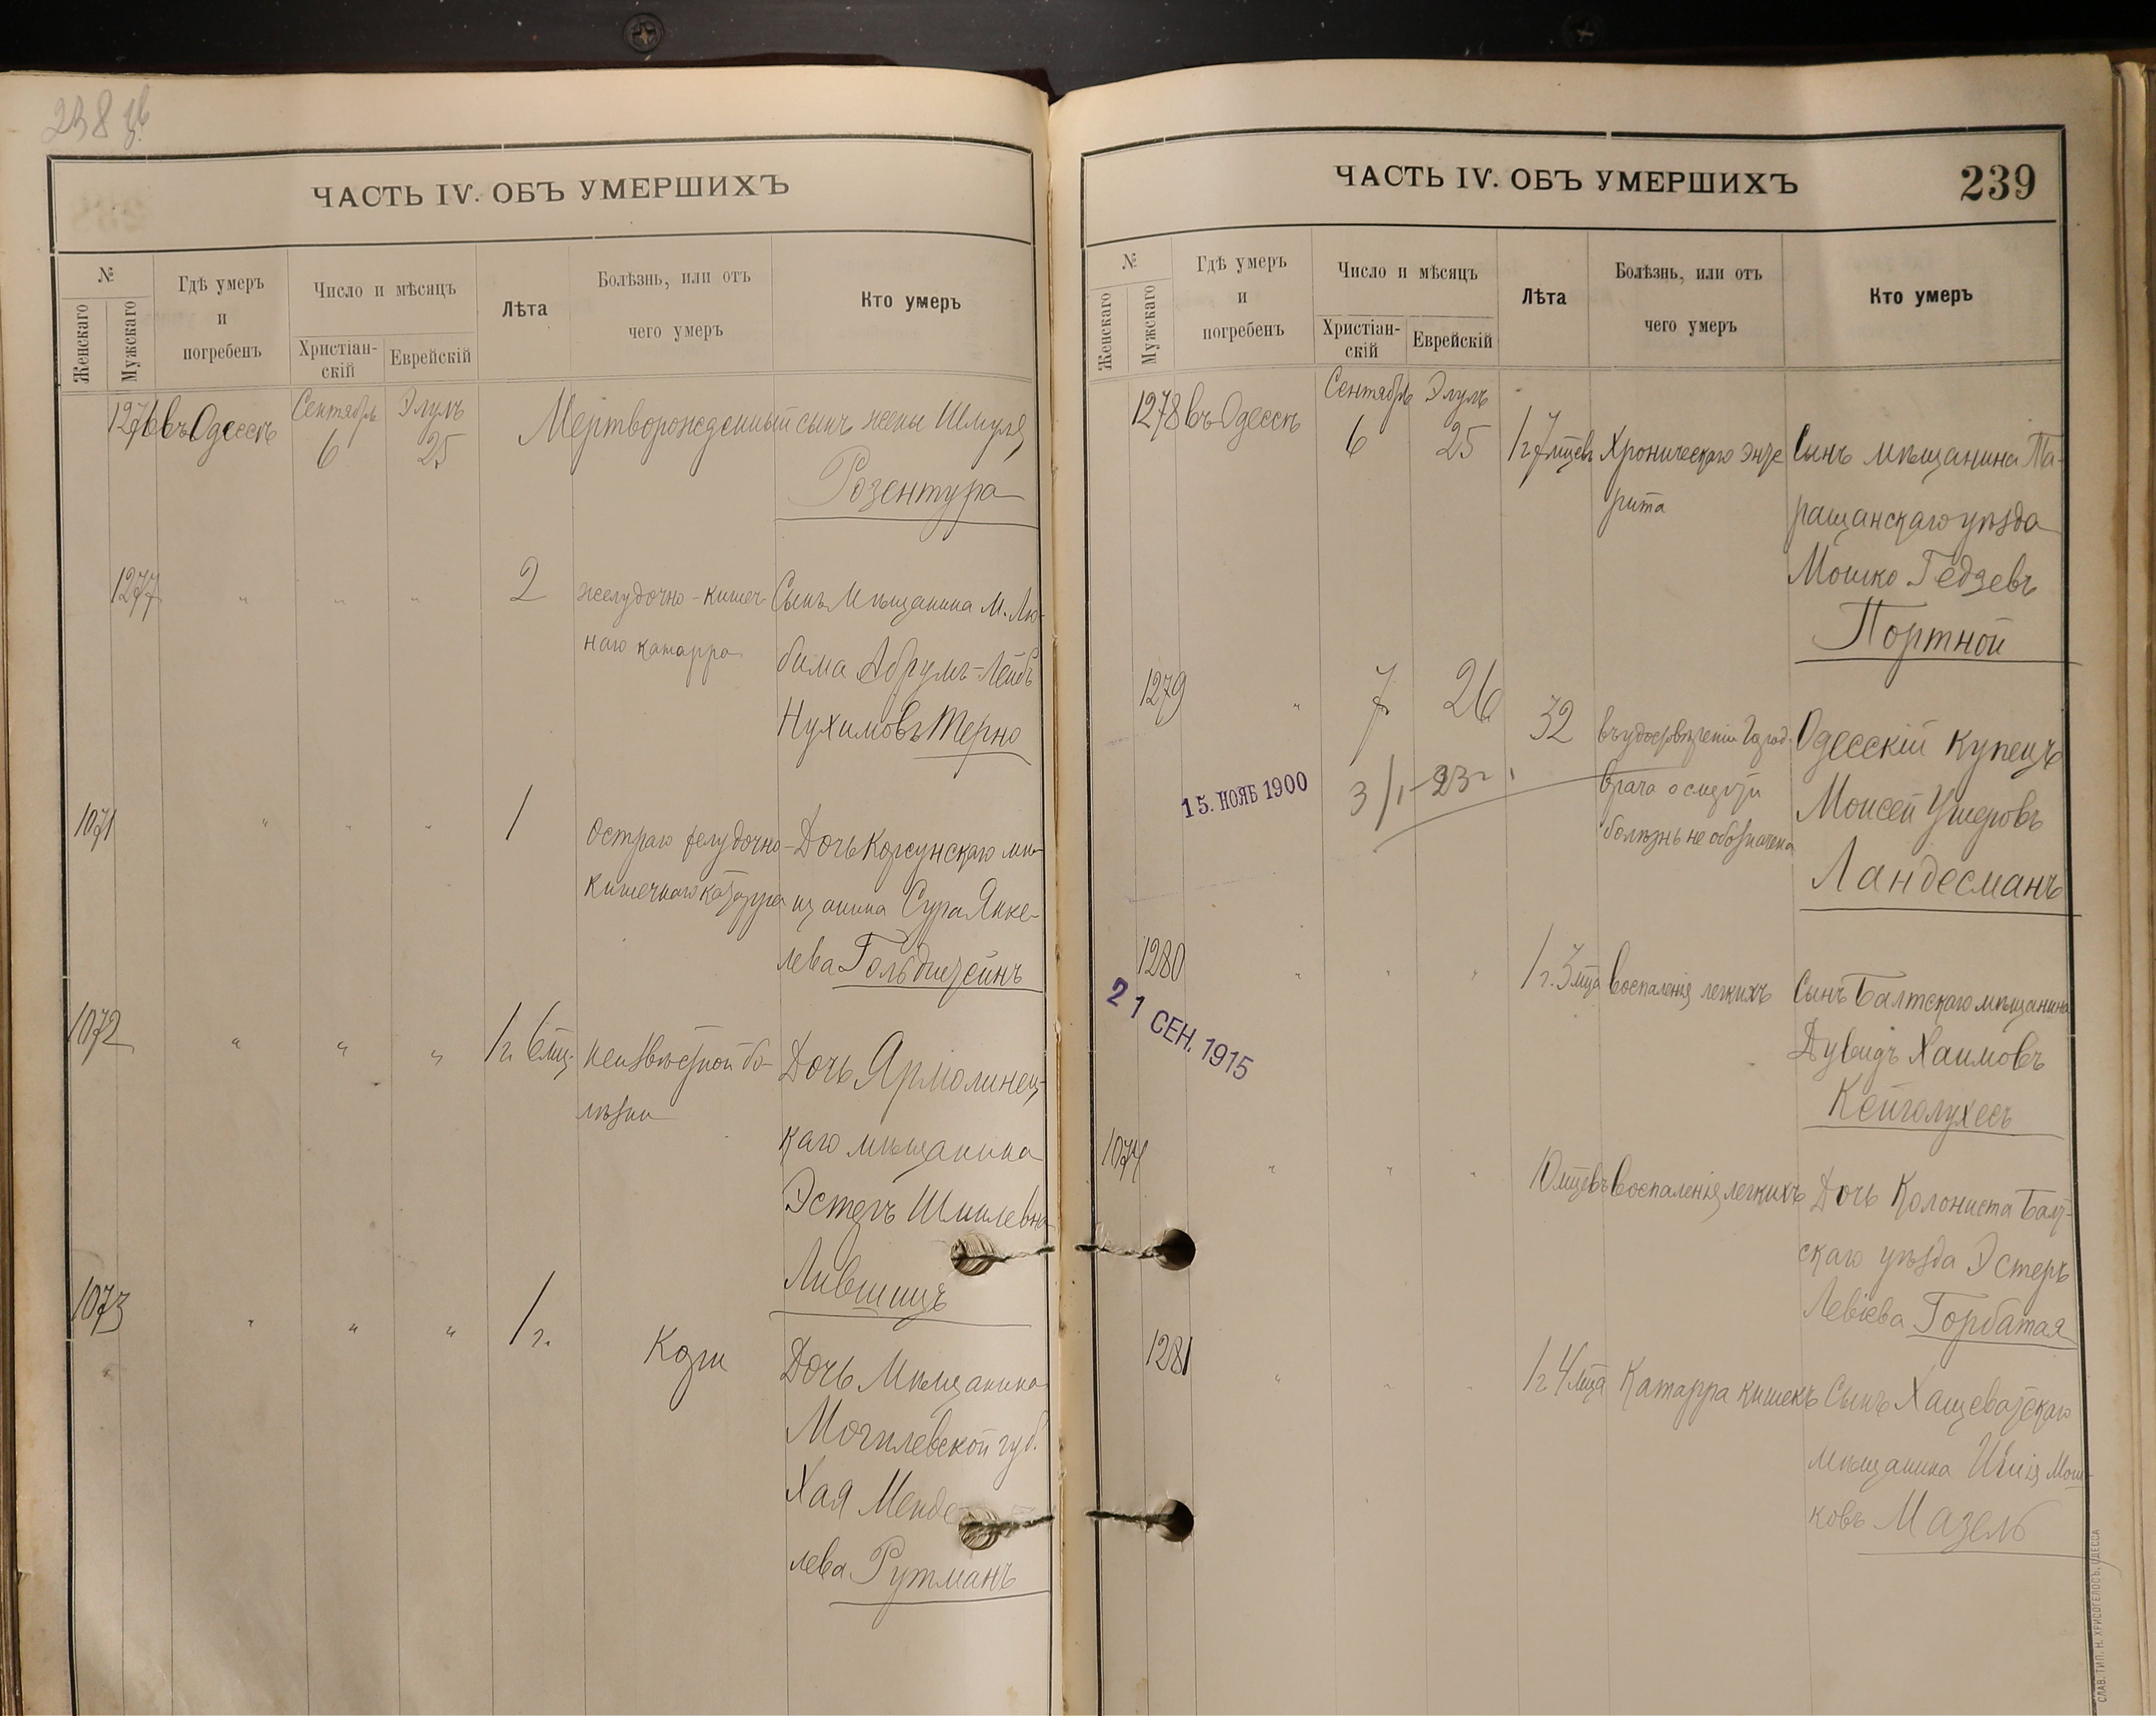 238 об.
ЧАСТЬ IV. ОБЪ УМЕРШИХЪ
№
Женскаго
Мужскаго
Гдѣ умеръ
и
погребенъ
Число и мѣсяцъ
Христіан-
скій
Еврейскій
Лѣта
Болѣзнь, или отъ
чего умеръ
Кто умеръ
1276 въ Одессѣ Сентябрь 6 Элулъ 25 Мертворожденный сынъ жены Шмуля
Розентура
1277 " " " 2 желудочно-кишеч- Сынъ мѣщанина м. Лю-
наго катарра бима Абрумъ-Лейбъ
Нухимовъ Терно
1071 " " " 1 Остраго желудочно- Дочь Корсунскаго мѣ-
кишечнаго катарра щанина Сура Янке-
лева Гольдштейнъ
1072 " " " 1 г. 6 мц. Неизвѣстной бо- Дочь Ярмолинец-
лѣзни каго мѣщанина
Эстеръ Шмилевна
Лившицъ
1073 " " " 1 г. Кори Дочь Мѣщанина
Могилевской губ.
Хая Менде
лева Рутманъ
ЧАСТЬ IV. ОБЪ УМЕРШИХЪ
239
№
Женскаго
Мужскаго
Гдѣ умеръ
и
погребенъ
Число и мѣсяцъ
Христіан-
скій
Еврейскій
Лѣта
Болѣзнь, или отъ
чего умеръ
Кто умеръ
1278 въ Одессѣ Сентябрь 6 Элулъ 25 1 г 7 мцевъ Хроническаго энте Сынъ мѣщанина Та-
рита ращанскаго уѣзда
Мошко Гедзевъ
Портной
1279 " 7 26 32 въ удостовѣреніи Город. Одесскій купецъ
15. НОЯБ 1900 3/I-23 г. врача о смерти Моисей Ушеровъ
болѣзнь не обозначена
Ландесманъ
1280 " " " 1 г. 3 мца Воспаленія легкихъ Сынъ Балтскаго мѣщанина
21 СЕН. 1915
Дувидъ Хаимовъ
Кейголухесъ
1074 " " " 10 мцевъ Воспаленія легкихъ Дочь Колониста Балт-
скаго уѣзда Эстеръ
Левіева Горбатая
1281 " " " 1 г 4 мца Катарра кишекъ Сынъ Хащеватскаго
мѣщанина Мош-
ковъ Мазель
СЛАВ. ТИП. Н. ХРИСОГЕЛОСЪ, ОДЕССА